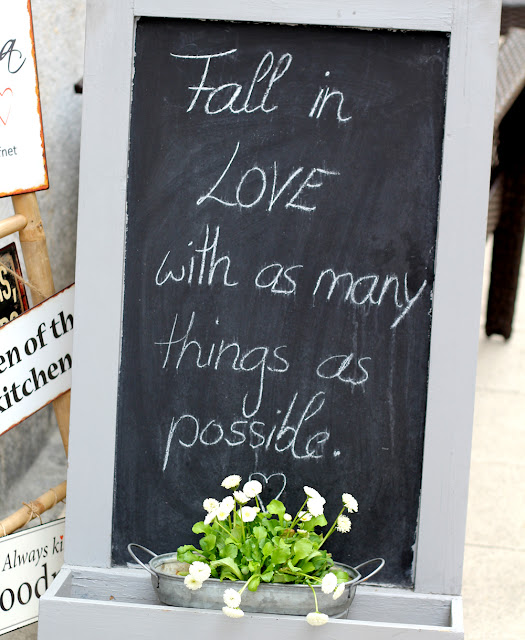 Fall in
LOVE
with as many
things as
possible.
a
fnet
en of the
kitchen
Always ki
ood